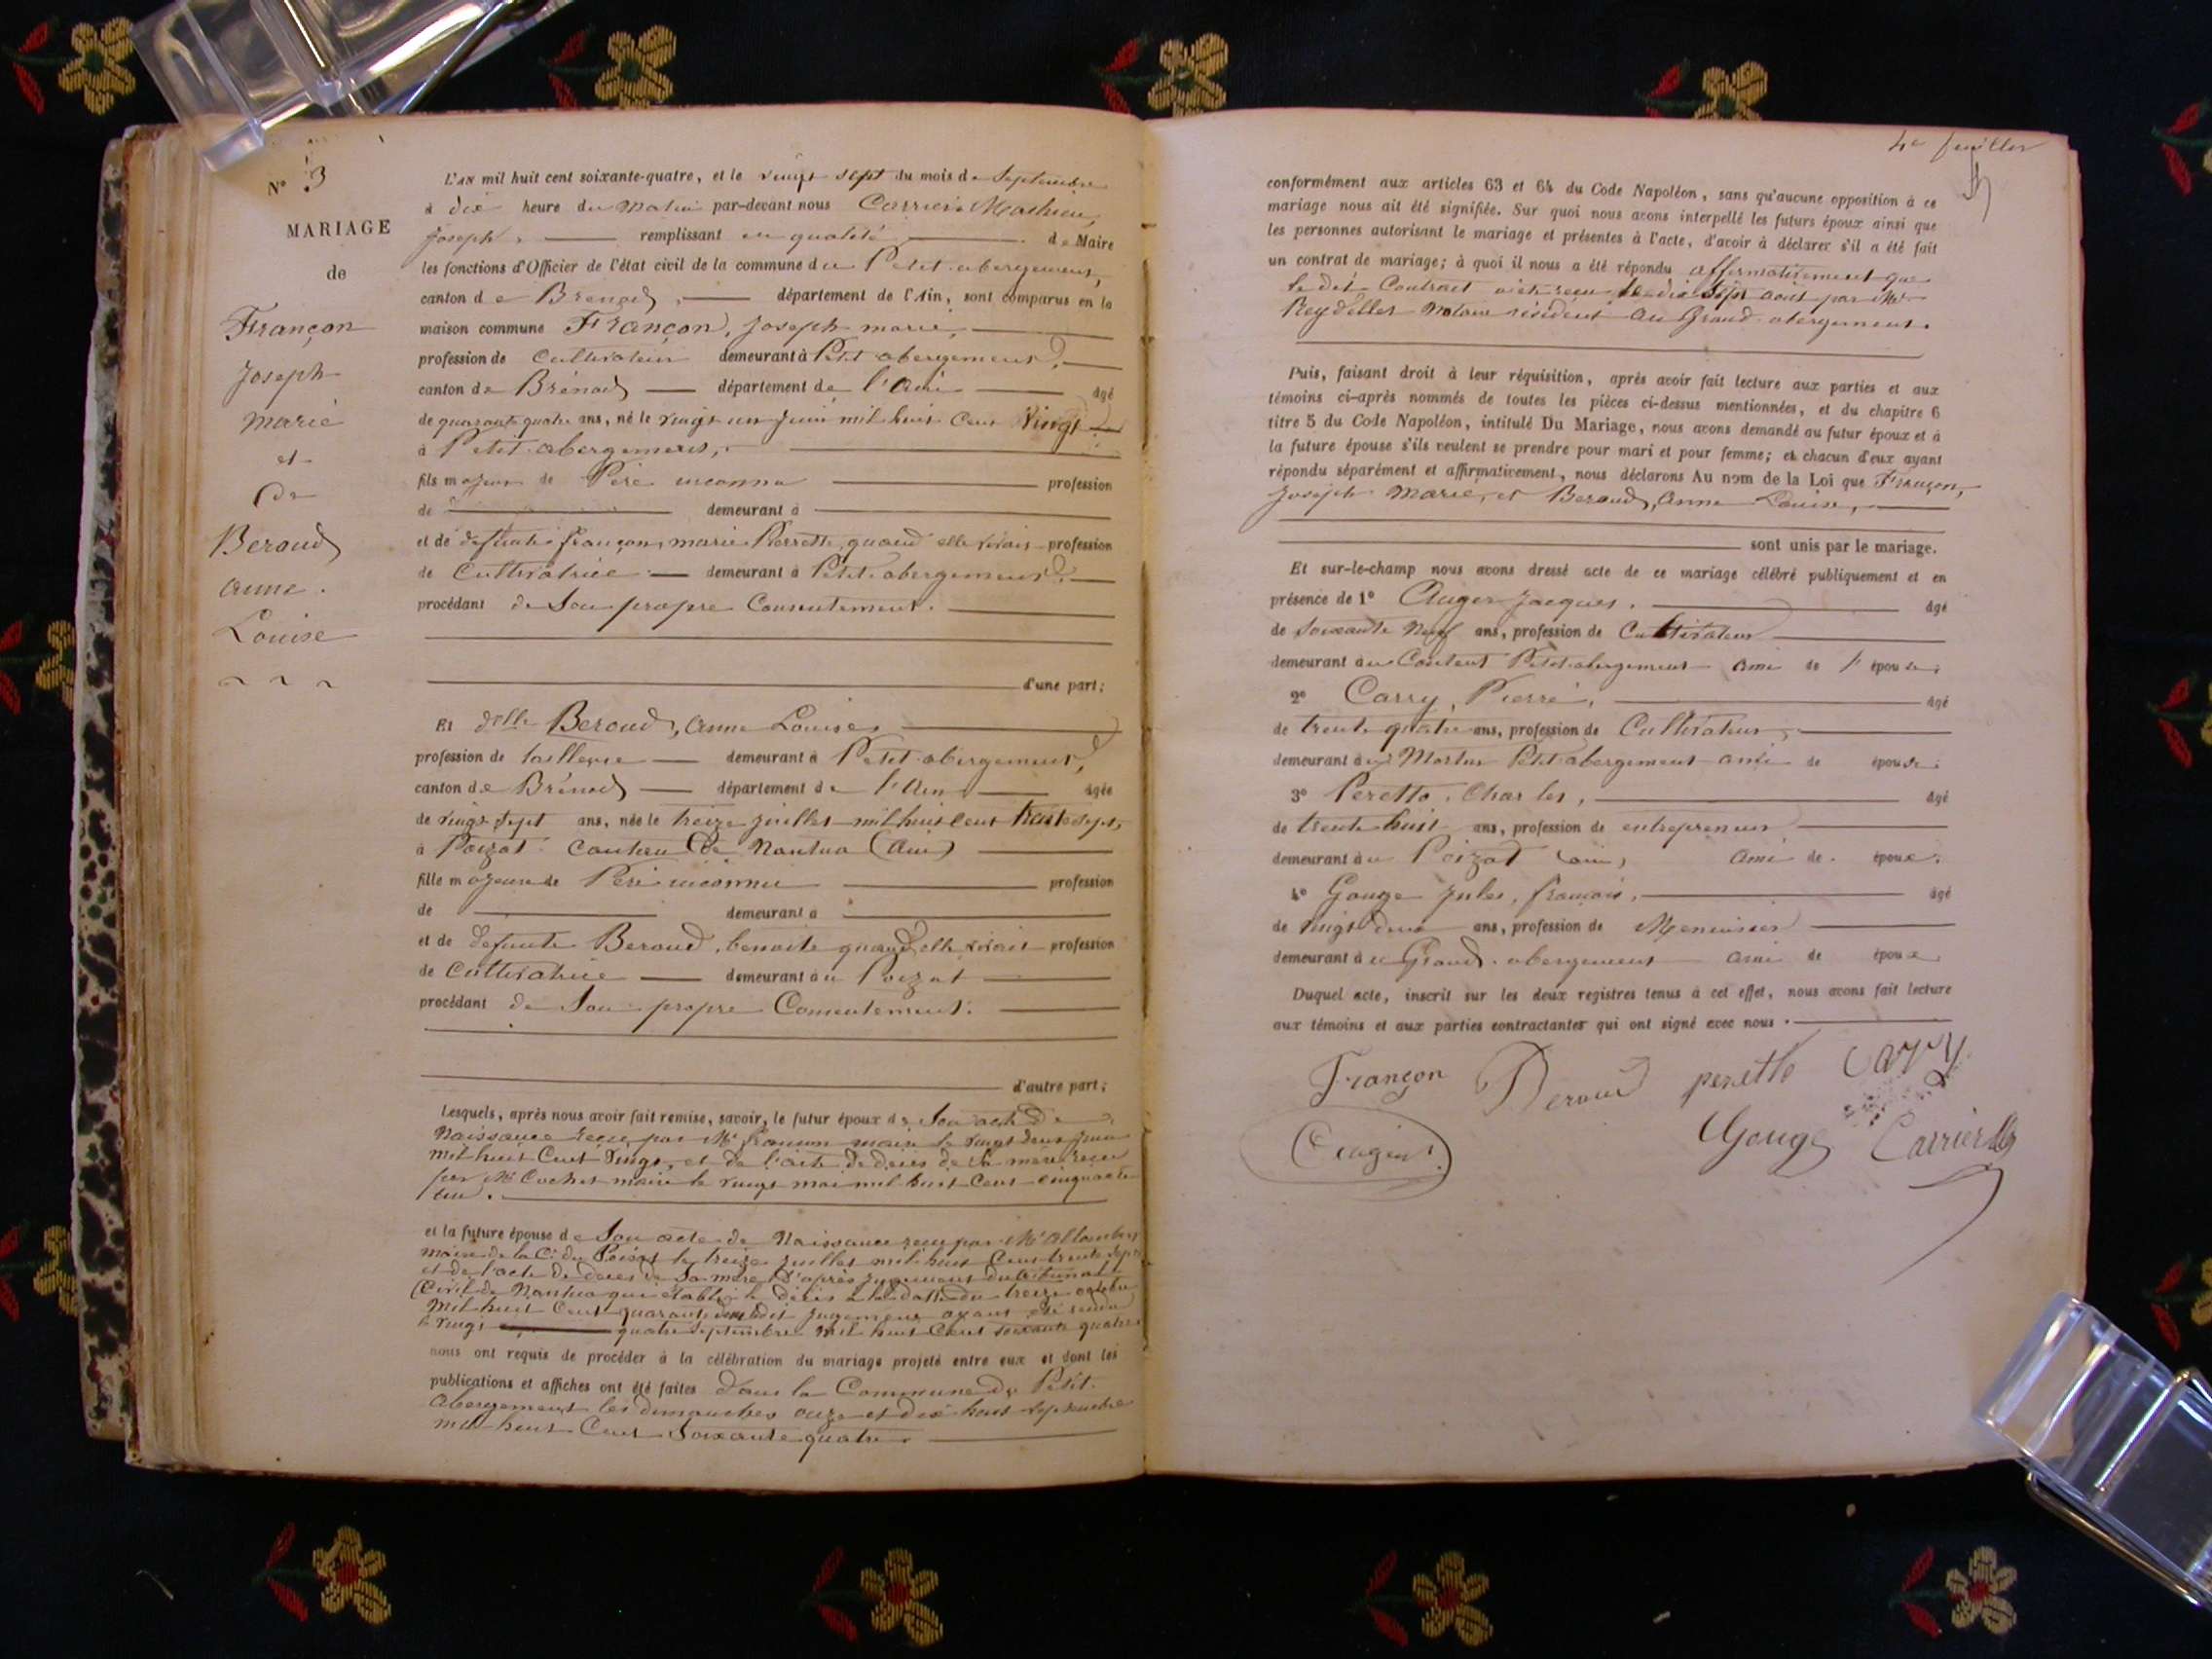 N° 3
MARIAGE
de
Françon
Joseph
marie
et
De
Beraud
anne
Louise
L'AN mil huit cent soixante-quatre, et le vingt sept du mois de Septembre
à dix heure du matin par-devant nous Carrier Mathieu
Joseph, remplissant en qualité de Maire
les fonctions d'Officier de l'état civil de la commune du Petit abergement,
canton de Brenod, département de l'Ain, sont comparus en la
maison commune Françon, Joseph marie,
profession de Cultivateur demeurant à Petit abergement,
canton de Brénod département de l'Ain âgé
de quarante quatre ans, né le vingt un juin mil huit Cent Vingt
à Petit abergement,
fils majeur de Père inconnu profession
de demeurant à
et de defunte françon, marie Pierrette, quand elle vivait profession
de Cultivatrice demeurant à Petit abergement
procédant de Son propre Consentement.
d'une part;
Et delle Beraud, Anne Louise,
profession de tailleuse demeurant à Petit abergement,
canton de Brénod département de l'Ain âgée
de vingt Sept ans, née le treize juillet mil huit Cent trente sept,
à Poizat Canton De Nantua (Ain)
fille majeure de Père inconnu profession
de demeurant à
et de defunte Beraud, benoite quand elle vivait profession
de Cultivatrice demeurant au Poizat
procédant de Son propre Consentement.
d'autre part;
Lesquels, après nous avoir fait remise, savoir, le futur époux de Son acte De
Naissance reçu par Mr maire le vingt deux juin
mil huit Cent Vingt, et de l'acte De décès de Sa mère reçu
par Mr Cochet maire le vingt mai mil huit Cent cinquante
un.
et la future épouse de Son acte de Naissance reçu par Mr
maire de la Ce du Poizat le treize juillet mil huit Cent trente Sept
et de l'acte De décès de Sa mère D'après jugement du tribunal
Civil de Nantua qui établit le décès à la date du treize octobre
Mil huit Cent quarante ledit jugement ayant été rendu
le vingt quatre Septembre mil huit Cent soixante quatre
nous ont requis de procéder à la célébration du mariage projeté entre eux et dont les
publications et affiches ont été faites Dans la Commune du Petit
Abergement les dimanches onze et dix huit Septembre
mil huit Cent Soixante quatre.
4e feuillet
conformément aux articles 63 et 64 du Code Napoléon, sans qu'aucune opposition à ce
mariage nous ait été signifiée. Sur quoi nous avons interpellé les futurs époux ainsi que
les personnes autorisant le mariage et présentes à l'acte, d'avoir à déclarer s'il a été fait
un contrat de mariage; à quoi il nous a été répondu affirmativement que
le dit Contrat a été reçu le dix Sept août par Me
Reydellet Notaire résident au Grand abergement.
Puis, faisant droit à leur réquisition, après avoir fait lecture aux parties et aux
témoins ci-après nommés de toutes les pièces ci-dessus mentionnées, et du chapitre 6
titre 5 du Code Napoléon, intitulé Du Mariage, nous avons demandé au futur époux et à
la future épouse s'ils veulent se prendre pour mari et pour femme; et chacun d'eux ayant
répondu séparément et affirmativement, nous déclarons Au nom de la Loi que Françon,
Joseph Marie, et Beraud, Anne Louise,
sont unis par le mariage.
Et sur-le-champ nous avons dressé acte de ce mariage célébré publiquement et en
présence de 1° Auger Jacques. âgé
de Soixante Neuf ans, profession de Cultivateur
demeurant au Petit abergement ami de l'épouse;
2° Carry, Pierre, âgé
de trente quatre ans, profession de Cultivateur,
demeurant à Petit abergement ami de épouse.
3° Peretto, Charles, âgé
de trente huit ans, profession de entrepreneur
demeurant au Poizat (ain) ami de époux.
4° Gouge Jules, françois, âgé
de vingt deux ans, profession de Menuisier
demeurant à Grand abergement ami de époux
Duquel acte, inscrit sur les deux registres tenus à cet effet, nous avons fait lecture
aux témoins et aux parties contractantes qui ont signé avec nous.
Françon Beraud peretto Carry
Gouge Carrier